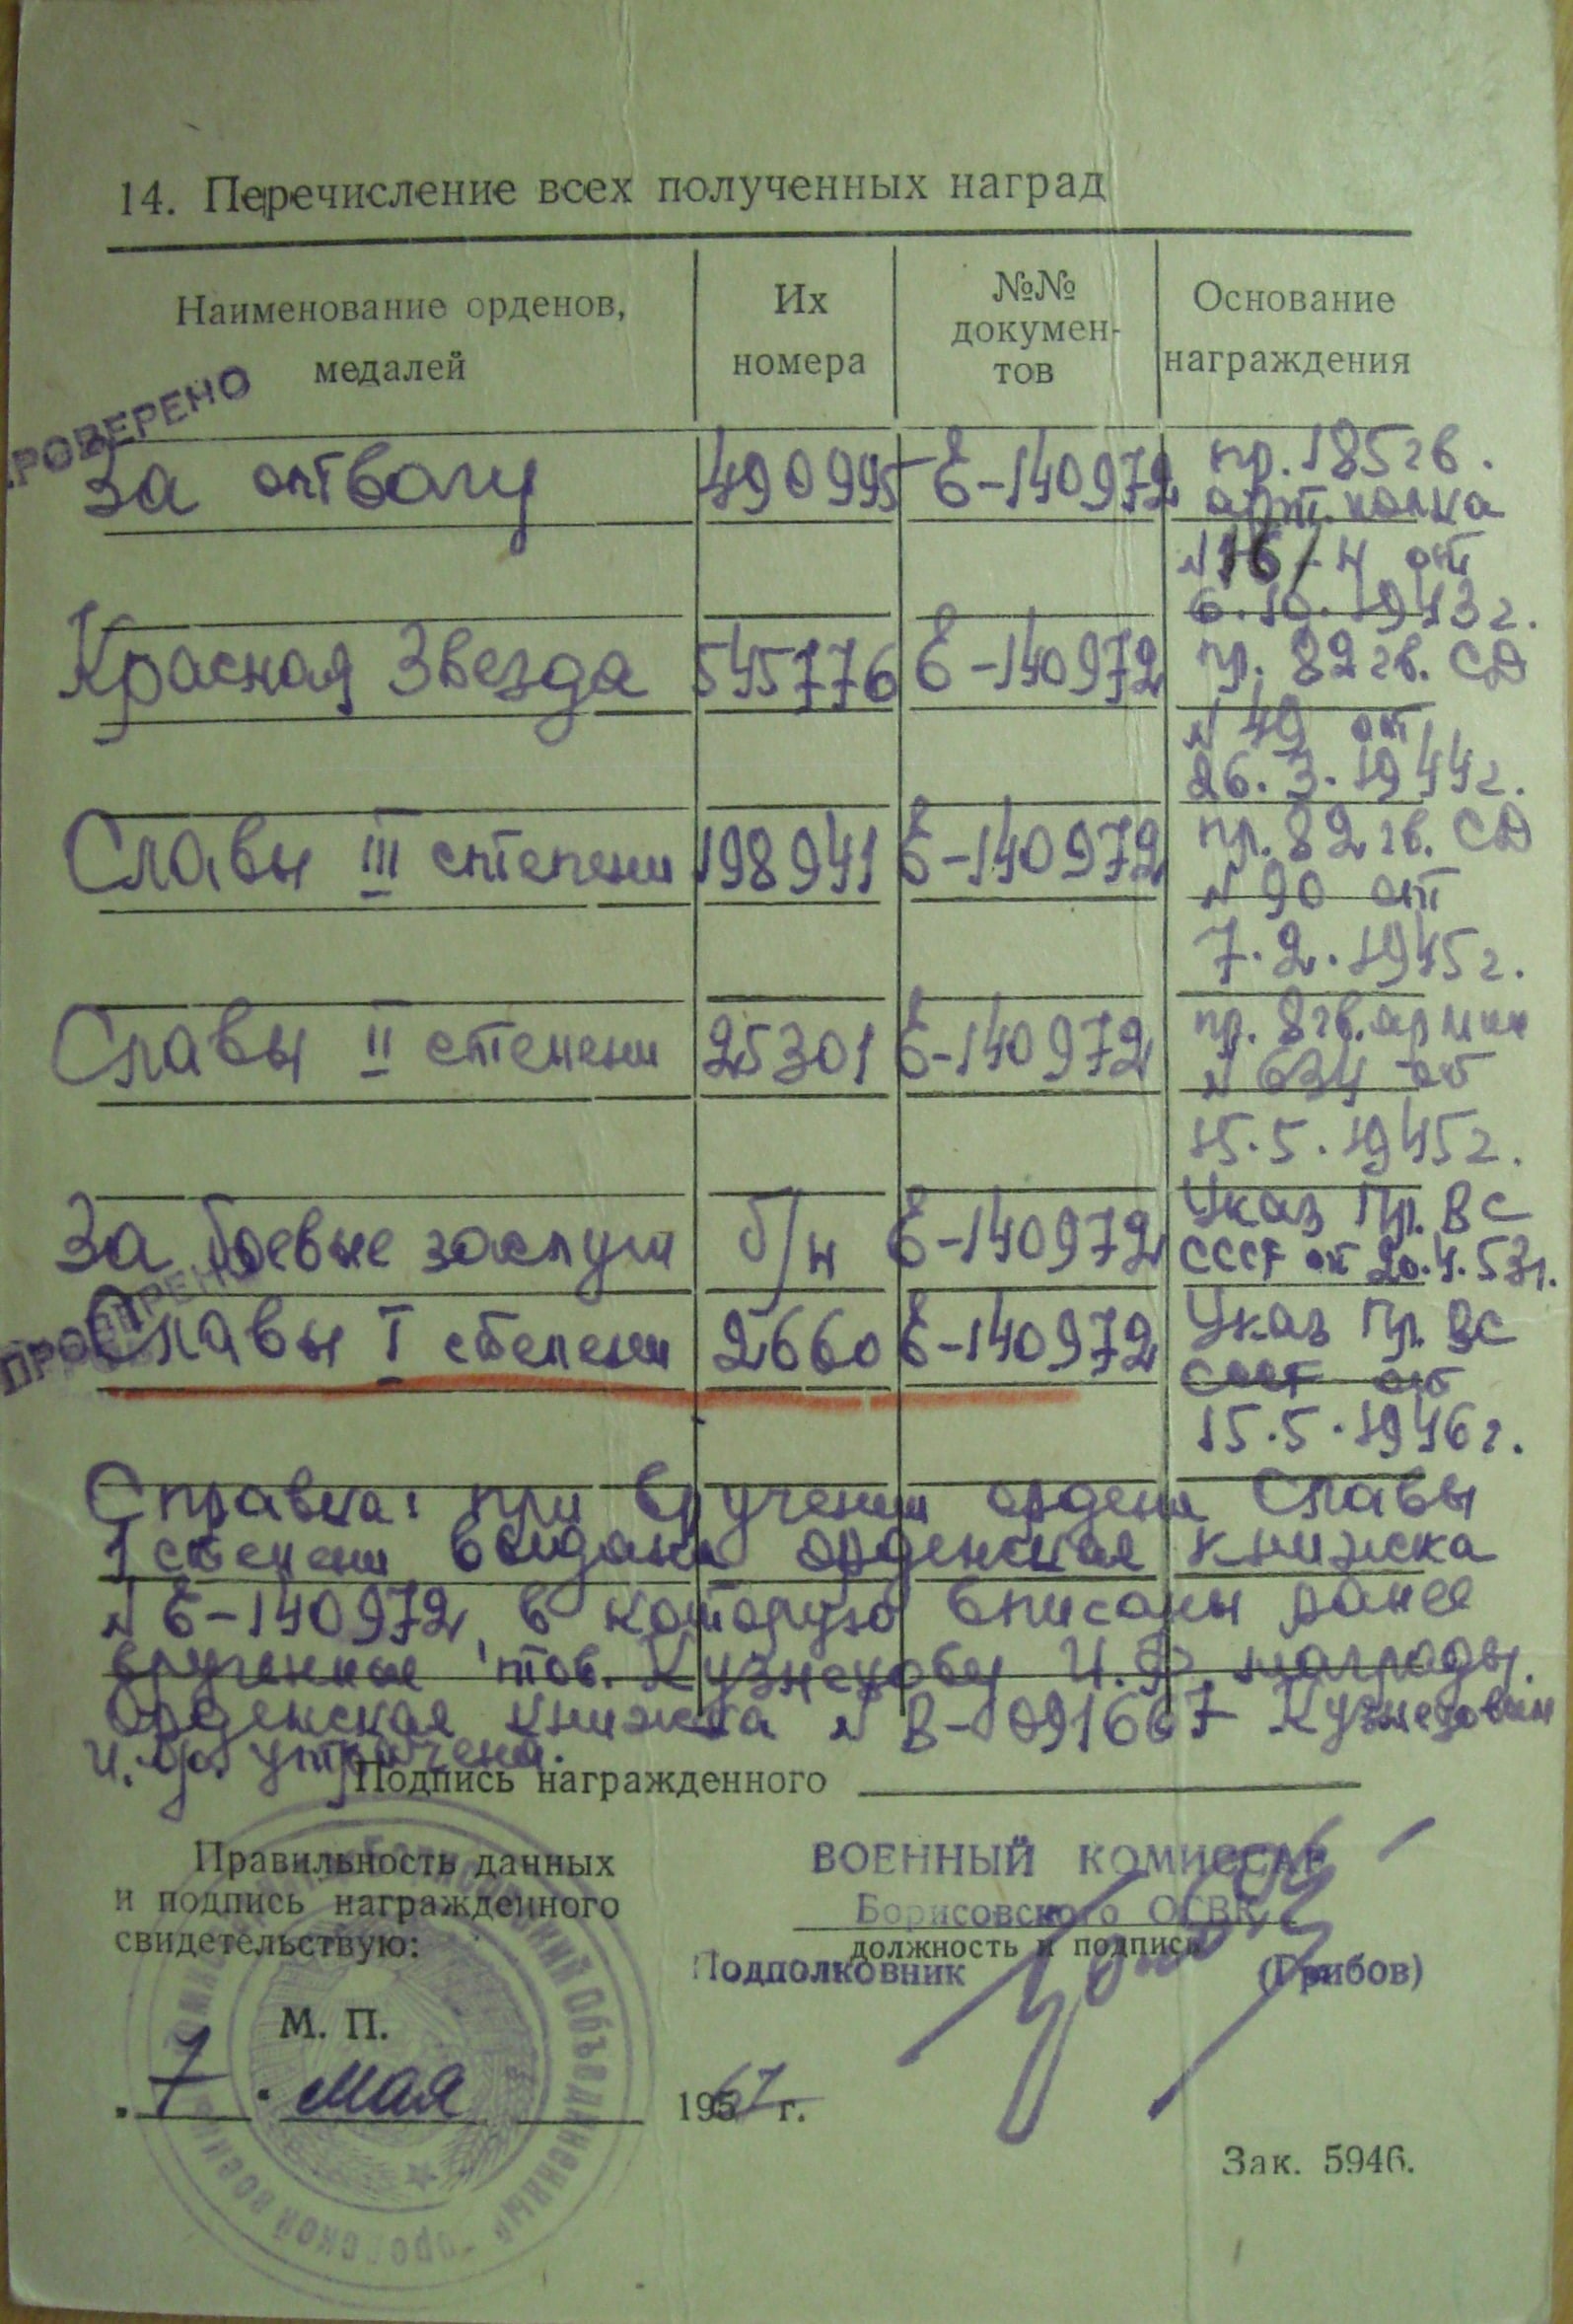 14. Перечисление всех полученных наград
Наименование орденов, медалей
Их номера
№№ документов
Основание награждения
ПРОВЕРЕНО
За отвагу 490995 Е-140972 пр. 185 гв.
арт. полка
от
6.10.1943 г.
Красная Звезда 545776 Е-140972 пр. 82 гв. СД
N 49 от
26.3.1944 г.
Славы III степени 198941 Е-140972 пр. 82 гв. СД
N 90 от
7.2.1945 г.
Славы II степени 25301 Е-140972 пр. 8 гв. армии
N 634 от
15.5.1945 г.
За боевые заслуги б/н Е-140972 Указ Пр. ВС
СССР от 20.4.53г.
Славы I степени 2660 Е-140972 Указ Пр. ВС
СССР от
15.5.1946 г.
Справка: при вручении ордена Славы
1 степени выдана орденская книжка
N Е-140972, в которую вписаны ранее
врученные тов. Кузнецову И.Ф. награды.
Орденская книжка N В-091667 Кузнецовым
И.Ф. утрачена.
Подпись награжденного
Правильность данных
и подпись награжденного
свидетельствую:
ВОЕННЫЙ КОМИССАР
Борисовского ОГВК
должность и подпись
Подполковник (Грибов)
М. П.
7 мая 1967 г.
Зак. 5946.